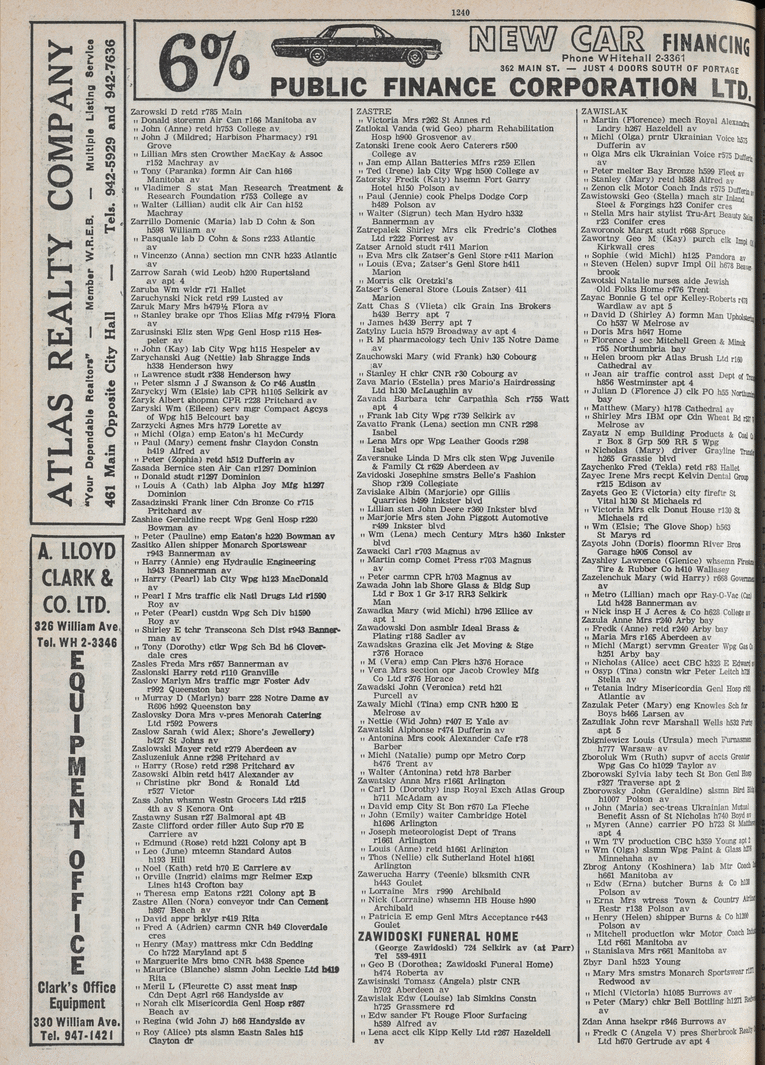 1240
6%
NEW CAR FINANCING
Phone WHitehall 2-3361
362 MAIN ST. — JUST 4 DOORS SOUTH OF PORTAGE
PUBLIC FINANCE CORPORATION LTD.
ATLAS REALTY COMPANY
"Your Dependable Realtors" — Member W.R.E.B. — Multiple Listing Service
461 Main Opposite City Hall — Tels. 942-5929 and 942-7636
A. LLOYD
CLARK &
CO. LTD.
326 William Ave.
Tel. WH 2-3346
EQUIPMENT OFFICE
Clark's Office
Equipment
330 William Ave.
Tel. 947-1421
Zarowski D retd r785 Main
" Donald storemn Air Can r166 Manitoba av
" John (Anne) retd h753 College av
" John J (Mildred; Harbison Pharmacy) r91
Grove
" Lillian Mrs sten Crowther MacKay & Assoc
r152 Machray av
" Tony (Paranka) formn Air Can h166
Manitoba av
" Vladimer S stat Man Research Treatment &
Research Foundation r753 College av
" Walter (Lillian) audit clk Air Can h152
Machray
Zarrillo Domenic (Maria) lab D Cohn & Son
h598 William av
" Pasquale lab D Cohn & Sons r233 Atlantic
av
" Vincenzo (Anna) section mn CNR h233 Atlantic
av
Zarrow Sarah (wid Leob) h200 Rupertsland
av apt 4
Zaruba Wm widr r71 Hallet
Zaruchynski Nick retd r99 Lusted av
Zaruk Mary Mrs h479½ Flora av
" Stanley brake opr Thos Elias Mfg r479½ Flora
av
Zarusinski Eliz sten Wpg Genl Hosp r115 Hes-
peler av
" John (Kay) lab City Wpg h115 Hespeler av
Zarychanski Aug (Nettie) lab Shragge Inds
h338 Henderson hwy
" Lawrence studt r338 Henderson hwy
" Peter slsmn J J Swanson & Co r46 Austin
Zaryckyj Wm (Elsie) lab CPR h1105 Selkirk av
Zaryk Albert shopmn CPR r228 Pritchard av
Zaryski Wm (Eileen) serv mgr Compact Agcys
of Wpg h15 Belcourt bay
Zarzycki Agnes Mrs h779 Lorette av
" Michl (Olga) emp Eaton's h1 McCurdy
" Paul (Mary) cement fnshr Claydon Constn
h419 Alfred av
" Peter (Zophia) retd h512 Dufferin av
Zasada Bernice sten Air Can r1297 Dominion
" Donald studt r1297 Dominion
" Louis A (Cath) lab Alpha Joy Mfg h1297
Dominion
Zasadzinski Frank liner Cdn Bronze Co r715
Pritchard av
Zashiae Geraldine recpt Wpg Genl Hosp r220
Bowman av
" Peter (Pauline) emp Eaton's h220 Bowman av
Zasitko Allen shipper Monarch Sportswear
r943 Bannerman av
" Harry (Annie) eng Hydraulic Engineering
h943 Bannerman av
" Harry (Pearl) lab City Wpg h123 MacDonald
av
" Pearl I Mrs traffic clk Natl Drugs Ltd r1590
Roy av
" Peter (Pearl) custdn Wpg Sch Div h1590
Roy av
" Shirley E tchr Transcona Sch Dist r943 Banner-
man av
" Tony (Dorothy) ctkr Wpg Sch Bd h6 Clover-
dale cres
Zasles Freda Mrs r657 Bannerman av
Zaslonski Harry retd r110 Granville
Zaslov Marlyn Mrs traffic mgr Foster Adv
r992 Queenston bay
" Murray D (Marlyn) barr 228 Notre Dame av
R606 h992 Queenston bay
Zaslovsky Dora Mrs v-pres Menorah Catering
Ltd r592 Powers
Zaslow Sarah (wid Alex; Shore's Jewellery)
h427 St Johns av
Zaslowski Mayer retd r279 Aberdeen av
Zasluzeniuk Anne r298 Pritchard av
" Harry (Rose) retd r298 Pritchard av
Zasowski Albin retd h417 Alexander av
" Christine pkr Bond & Ronald Ltd
r527 Victor
Zass John whsmn Westn Grocers Ltd r215
4th av S Kenora Ont
Zastawny Susan r27 Balmoral apt 4B
Zaste Clifford order filler Auto Sup r70 E
Carriere av
" Edmund (Rose) retd h221 Colony apt B
" Leo (June) mtcemn Standard Autos
h193 Hill
" Noel (Kath) retd h70 E Carriere av
" Orville (Ingrid) claims mgr Reimer Exp
Lines h143 Crofton bay
" Theresa emp Eatons r221 Colony apt B
Zastre Allen (Nora) conveyor tndr Can Cement
h867 Beach av
" David appr brklyr r419 Rita
" Fred A (Adrien) carmn CNR h49 Cloverdale
cres
" Henry (May) mattress mkr Cdn Bedding
Co h722 Maryland apt 5
" Marguerite Mrs bmo CNR b438 Spence
" Maurice (Blanche) slsmn John Leckie Ltd h419
Rita
" Meril L (Fleurette C) asst meat insp
Cdn Dept Agri r66 Handyside av
" Norah clk Misericordia Genl Hosp r867
Beach av
" Regina (wid John J) h66 Handyside av
" Roy (Alice) pts slsmn Eastn Sales h15
Claydon dr
ZASTRE
" Victoria Mrs r262 St Annes rd
Zatlokal Vanda (wid Geo) pharm Rehabilitation
Hosp h900 Grosvenor av
Zatonski Irene cook Aero Caterers r500
College av
" Jan emp Allan Batteries Mfrs r259 Ellen
" Ted (Irene) lab City Wpg h500 College av
Zatorsky Fredk (Katy) hsemn Fort Garry
Hotel h150 Polson av
" Paul (Jennie) cook Phelps Dodge Corp
h489 Polson av
" Walter (Sigrun) tech Man Hydro h332
Bannerman av
Zatrepalek Shirley Mrs clk Fredric's Clothes
Ltd r222 Forrest av
Zatser Arnold studt r411 Marion
" Eva Mrs clk Zatser's Genl Store r411 Marion
" Louis (Eva; Zatser's Genl Store h411
Marion
" Morris clk Oretzki's
Zatser's General Store (Louis Zatser) 411
Marion
Zatt Chas S (Vlieta) clk Grain Ins Brokers
h439 Berry apt 7
" James h439 Berry apt 7
Zatylny Lucia h579 Broadway av apt 4
" R M pharmacology tech Univ 135 Notre Dame
av
Zauchowski Mary (wid Frank) h30 Cobourg
av
" Stanley H chkr CNR r30 Cobourg av
Zava Mario (Estella) pres Mario's Hairdressing
Ltd h130 McLaughlin av
Zavada Barbara tchr Carpathia Sch r755 Watt
apt 4
" Frank lab City Wpg r739 Selkirk av
Zavatto Frank (Lena) section mn CNR r298
Isabel
" Lena Mrs opr Wpg Leather Goods r298
Isabel
Zaversnuke Linda D Mrs clk sten Wpg Juvenile
& Family Ct r629 Aberdeen av
Zavidoski Josephine smstrs Belle's Fashion
Shop r209 Collegiate
Zavislake Albin (Marjorie) opr Gillis
Quarries h499 Inkster blvd
" Lillian sten John Deere r360 Inkster blvd
" Marjorie Mrs sten John Piggott Automotive
r499 Inkster blvd
" Wm (Lena) mech Century Mtrs h360 Inkster
blvd
Zawacki Carl r703 Magnus av
" Martin comp Comet Press r703 Magnus
av
" Peter carmn CPR h703 Magnus av
Zawada John lab Shore Glass & Bldg Sup
Ltd r Box 1 Gr 3-17 RR3 Selkirk
Man
Zawadka Mary (wid Michl) h796 Ellice av
apt 1
Zawadowski Don asmblr Ideal Brass &
Plating r188 Sadler av
Zawadskas Grazina clk Jet Moving & Stge
r376 Horace
" M (Vera) emp Can Pkrs h376 Horace
" Vera Mrs section opr Jacob Crowley Mfg
Co Ltd r376 Horace
Zawadski John (Veronica) retd h21
Purcell av
Zawaly Michl (Tina) emp CNR h200 E
Melrose av
" Nettie (Wid John) r407 E Yale av
Zawatski Alphonse r474 Dufferin av
" Antonina Mrs cook Alexander Cafe r78
Barber
" Michl (Natalie) pump opr Metro Corp
h476 Trent av
" Walter (Antonina) retd h78 Barber
Zawatsky Anna Mrs r1661 Arlington
" Carl D (Dorothy) insp Royal Exch Atlas Group
h711 McAdam av
" David emp City St Bon r670 La Fleche
" John (Emily) waiter Cambridge Hotel
h1696 Arlington
" Joseph meteorologist Dept of Trans
r1661 Arlington
" Louis (Anne) retd h1661 Arlington
" Thos (Nellie) clk Sutherland Hotel h1661
Arlington
Zawerucha Harry (Teenie) blksmith CNR
h443 Goulet
" Lorraine Mrs r990 Archibald
" Nick (Lorraine) whsemn HB House h990
Archibald
" Patricia E emp Genl Mtrs Acceptance r443
Goulet
ZAWIDOSKI FUNERAL HOME
(George Zawidoski) 724 Selkirk av (at Parr)
Tel 589-4911
" Geo B (Dorothea; Zawidoski Funeral Home)
h474 Roberta av
Zawisinski Tomasz (Angela) plstr CNR
h702 Aberdeen av
Zawislak Edw (Louise) lab Simkins Constn
h725 Grassmere rd
" Edw sander Ft Rouge Floor Surfacing
h589 Alfred av
" Lena acct clk Kipp Kelly Ltd r267 Hazeldell
av
ZAWISLAK
" Martin (Florence) mech Royal Alexandra
Lndry h267 Hazeldell av
" Michl (Olga) prntr Ukrainian Voice h575
Dufferin av
" Olga Mrs clk Ukrainian Voice r575 Dufferin
av
" Peter melter Bay Bronze h599 Fleet av
" Stanley (Mary) retd h588 Alfred av
" Zenon clk Motor Coach Inds r575 Dufferin av
Zawistowski Geo (Stella) mach atr Inland
Steel & Forgings h23 Conifer cres
" Stella Mrs hair stylist Tru-Art Beauty Salon
r23 Conifer cres
Zaworonok Margt studt r668 Spruce
Zawortny Geo M (Kay) purch clk Impl Oil
Kirkwall cres
" Sophie (wid Michl) h125 Pandora av
" Steven (Helen) supvr Impl Oil h678 Beaver-
brook
Zawotski Natalie nurses aide Jewish
Old Folks Home r476 Trent
Zayac Bonnie G tel opr Kelley-Roberts r478
Wardlaw av apt 5
" David D (Shirley A) formn Man Upholstering
Co h537 W Melrose av
" Doris Mrs h647 Home
" Florence J sec Mitchell Green & Minuk
r55 Northumbria bay
" Helen broom pkr Atlas Brush Ltd r169
Cathedral av
" Jean air traffic control asst Dept of Trans
h856 Westminster apt 4
" Julian D (Florence J) clk PO h55 Northumbria
bay
" Matthew (Mary) h178 Cathedral av
" Shirley Mrs IBM opr Cdn Wheat Bd r537
Melrose av
Zayatz N emp Building Products & Coal Co
r Box 8 Grp 509 RR 5 Wpg
" Nicholas (Mary) driver Grayline Transfer
h265 Grassie blvd
Zaychenko Fred (Tekla) retd r83 Hallet
Zayec Irene Mrs recpt Kelvin Dental Group
r215 Edison av
Zayets Geo E (Victoria) city firefir St
Vital h130 St Michaels rd
" Victoria Mrs clk Donut House r130 St
Michaels rd
" Wm (Elsie; The Glove Shop) h563
St Marys rd
Zayots John (Doris) floormn River Bros
Garage h905 Consol av
Zayshley Lawrence (Glenice) whsemn Firestone
Tire & Rubber Co b410 Wallasey
Zazelenchuk Mary (wid Harry) r668 Government
av
" Metro (Lillian) mach opr Ray-O-Vac (Can)
Ltd h428 Bannerman av
" Nick insp H J Acres & Co h628 College av
Zazula Anne Mrs r240 Arby bay
" Fredk (Anne) retd r240 Arby bay
" Maria Mrs r165 Aberdeen av
" Michl (Margt) servmn Greater Wpg Gas Co
h251 Arby bay
" Nicholas (Alice) acct CBC h323 E Edward av
" Osyp (Tina) constn wkr Peter Leitch h726
Stella av
" Tetania lndry Misericordia Genl Hosp r601
Atlantic av
Zazulak Peter (Mary) eng Knowles Sch for
Boys b466 Larsen av
Zazuliak John rcvr Marshall Wells h532 Furby
apt 5
Zbigniewicz Louis (Ursula) mech Furnasman
h777 Warsaw av
Zboroluk Wm (Ruth) supvr of accts Greater
Wpg Gas Co h1029 Taylor av
Zborowski Sylvia laby tech St Bon Genl Hosp
r327 Traverse apt 2
Zborowsky John (Geraldine) slsmn Bird Bldg
h1007 Polson av
" John (Maria) sec-treas Ukrainian Mutual
Benefit Assn of St Nicholas h740 Boyd av
" Myren (Anne) carrier PO h723 St Matthews
apt 4
" Wm TV production CBC h359 Young apt 2
" Wm (Olga) slsmn Wpg Paint & Glass h276
Minnehaha av
Zbrog Antony (Koshinera) lab Mtr Coach Inds
h661 Manitoba av
" Edw (Erna) butcher Burns & Co h138
Polson av
" Erna Mrs wtress Town & Country Airlines
Restr r138 Polson av
" Henry (Helen) shipper Burns & Co h1200
Polson av
" Mitchell production wkr Motor Coach Inds
Ltd r661 Manitoba av
" Stanislava Mrs r661 Manitoba av
Zbyr Danl h523 Young
" Mary Mrs smstrs Monarch Sportswear r1271
Redwood av
" Michl (Victoria) h1085 Burrows av
" Peter (Mary) chkr Bell Bottling h1271 Redwood
av
Zdan Anna hsekpr r846 Burrows av
" Fredk C (Angela V) pres Sherbrook Realty
Ltd h670 Gertrude av apt 4